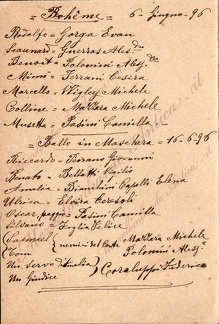 = Bohème = 6-Giugno-96
Rodolfo = Gorga Evan
Schaunard = Guerras Aless.dro
Benoit = Polonini Aless.
Mimì = Ferrani Cesira
Marcello = Wigley Michele
Colline = Mazzara Michele
Musetta = Pasini Camilla
= Ballo in Maschera = 15-6-96
Riccardo = Giovanni
Renato = Bellatti Virgilio
Amelia = Bianchini Capelli Elena
Ulrica = Elvira Ceresoli
Oscar, paggio = Pasini Camilla
Silvano = Foglia Felice
Samuel
Tom
nemici del Conte
Mazzara Michele
Polonini Aless.
Un servo d'Amelia
Un Giudice
Federico